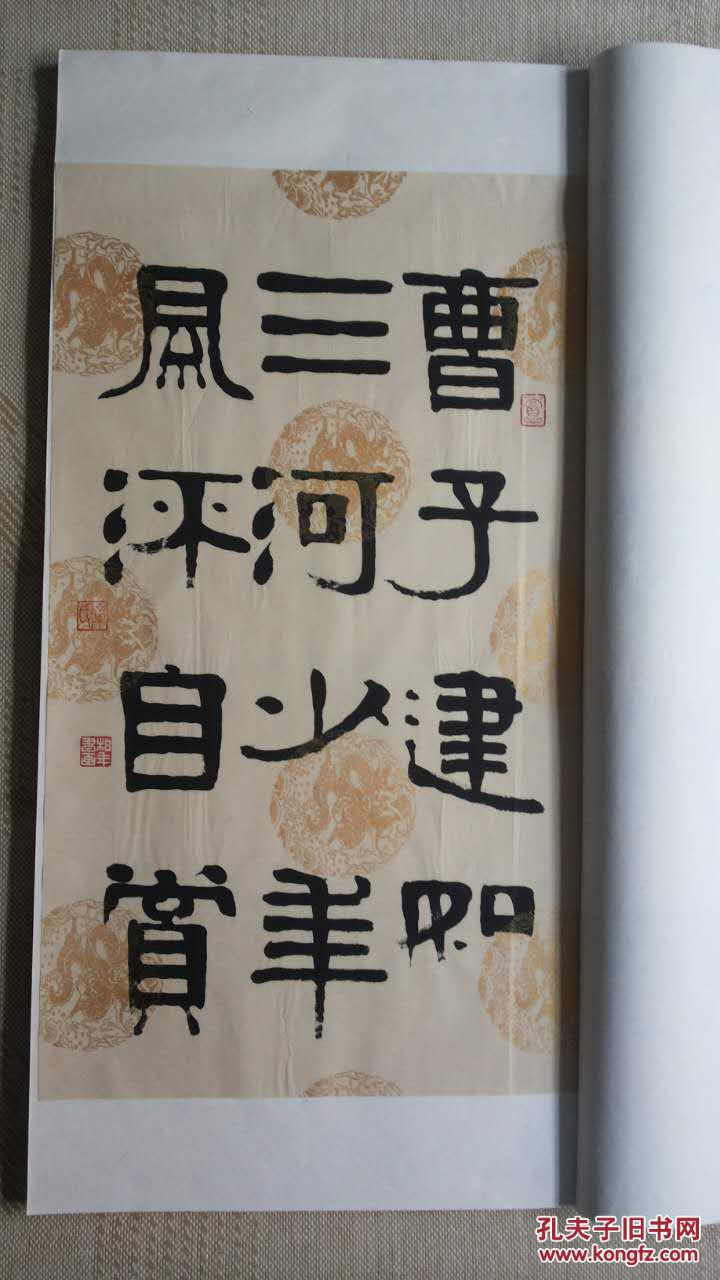 曹子建如
三河少年
風流自賞
孔夫子旧书网
www.kongfz.com